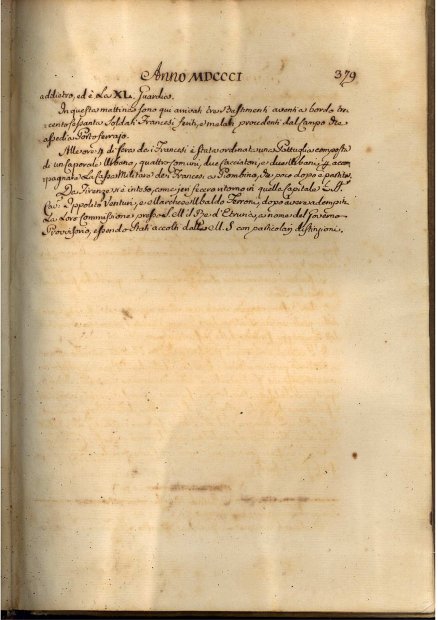 Anno MDCCCI 379
addietro, ed è la XL. Guardia.
In questa mattina sono qui arrivati tre bastimenti aventi a bordo tre-
centosessanta Soldati Francesi feriti, e malati procedenti dal Campo che
assedia Portoferrajo.
Alle ore 9 di sera da i Francesi è stata ordinata una Pattuglia composta
di un Caporale Urbano, quattro comuni, due Cacciatori, e due Urbani, p accom
pagnare la Cassa Militare de Francesi a Piombino, che poco dopo è partita.
Da Firenze vi è inteso, come jeri fecero ritorno in quella Capitale
Cav: Ippolito Venturi, e Marchese Ubaldo Feroni, dopo avere adempita
la loro Commissione presso S. M. il Re d'Etruria, a nome del Governo
Provvisorio, essendo stati accolti dalla M. S. con particolari distinzioni.